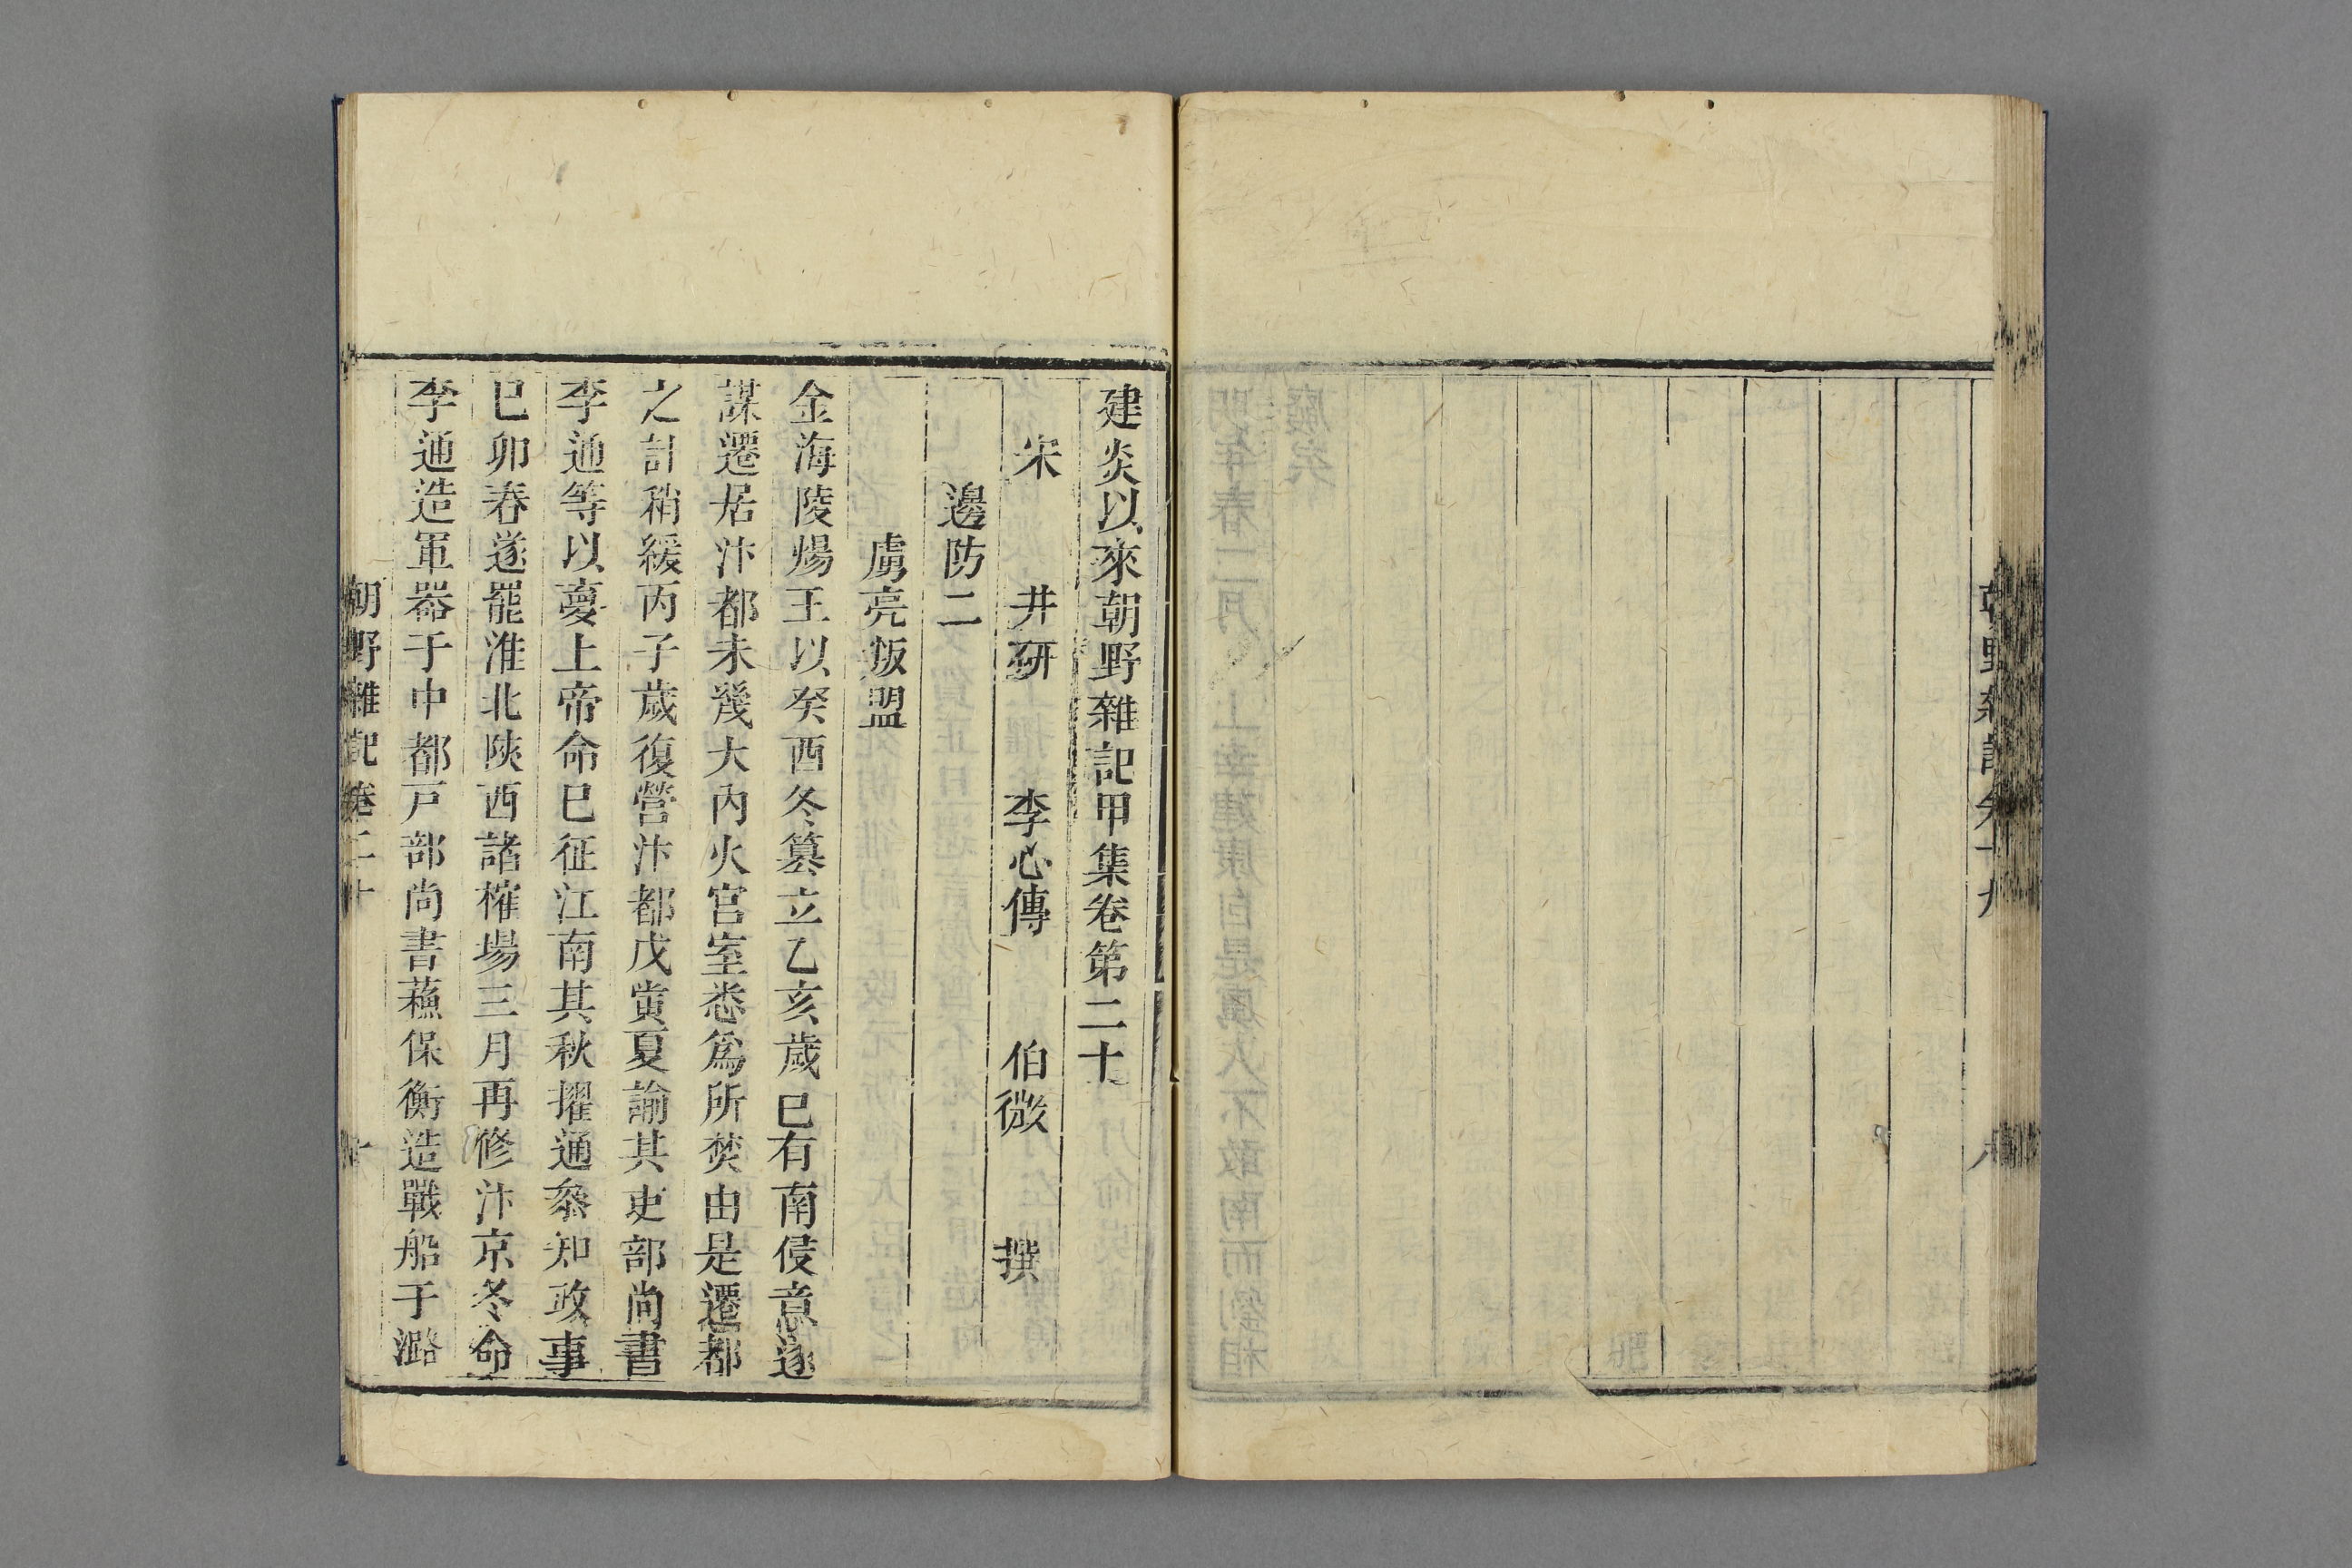 建炎以來朝野雜記甲集卷第二十
宋 井研 李心傳 伯微 撰
邊防二
虜亮叛盟
金海陵煬王以癸酉冬簒立乙亥歲已有南侵意遂
謀遷居汴都未幾大內火宮室悉爲所焚由是遷都
之計稍緩丙子歲復營汴都戊寅夏諭其吏部尚書
李通等以夢上帝命已征江南其秋擢通叅知政事
已卯春遂罷淮北陝西諸榷場三月再修汴京冬命
李通造軍器于中都戸部尚書蘓保衡造戰船于潞
朝野雜記卷二十